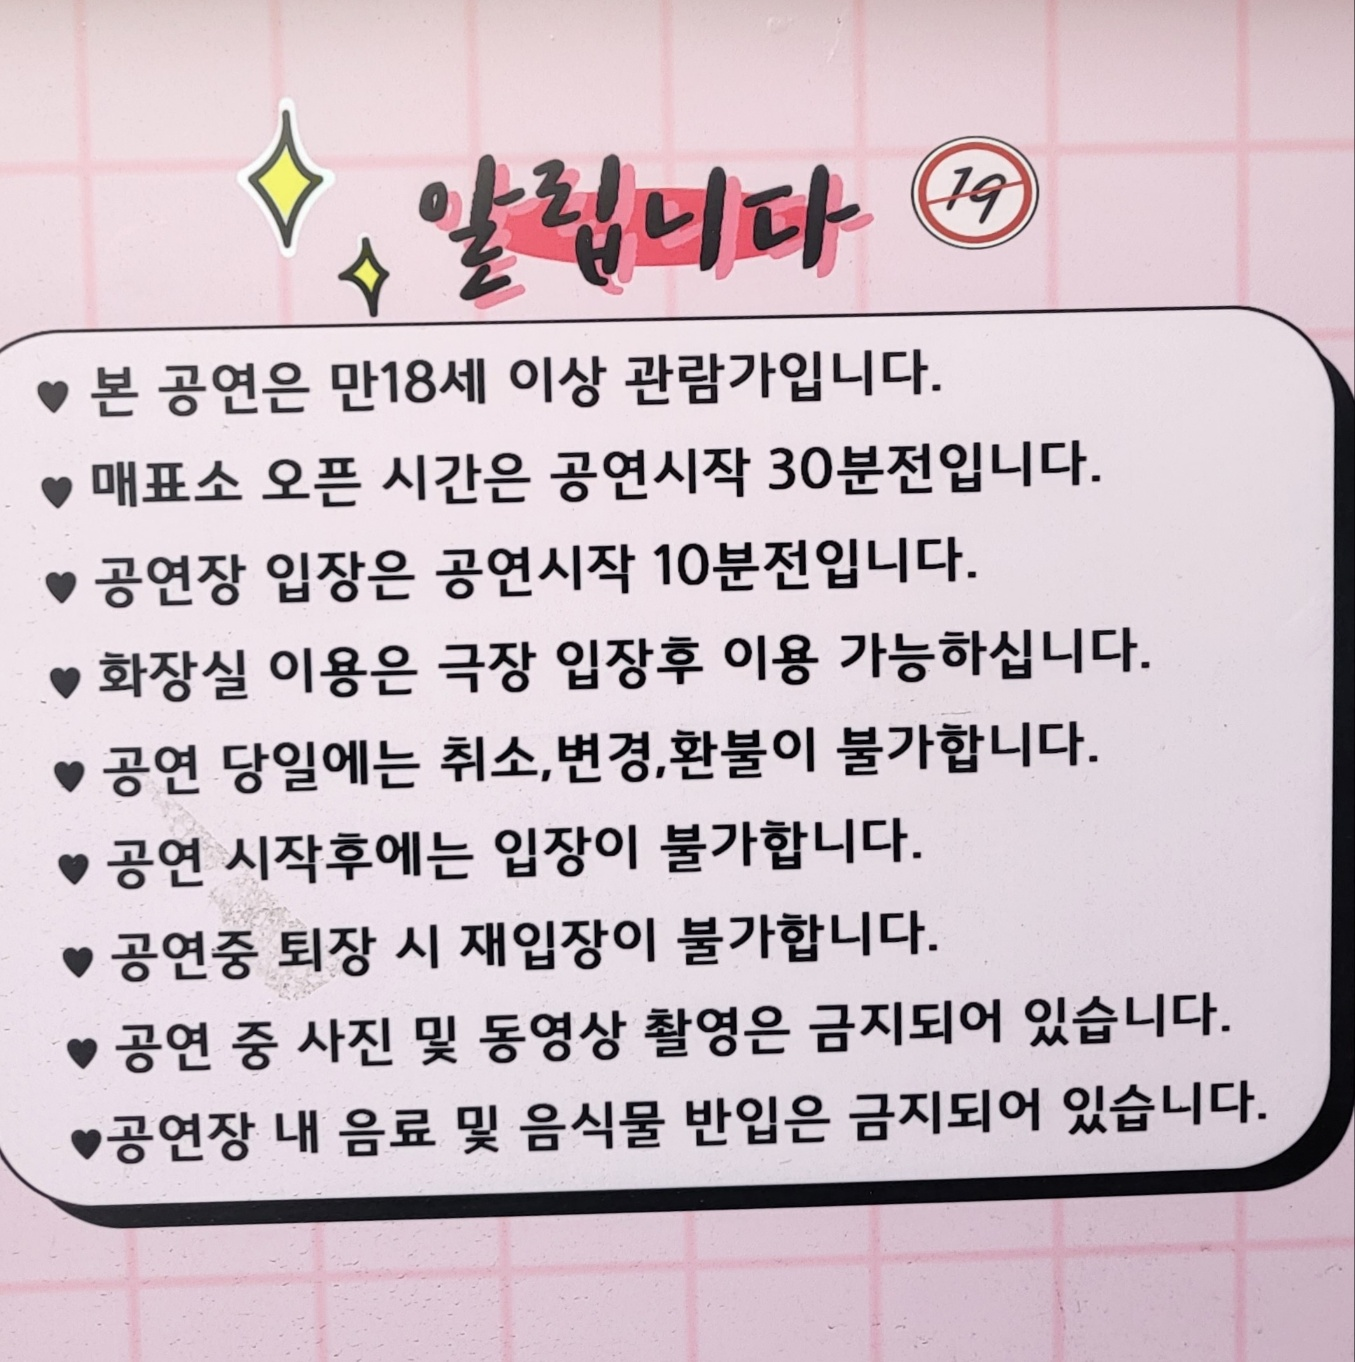 알립니다 19
♥ 본 공연은 만18세 이상 관람가입니다.
♥ 매표소 오픈 시간은 공연시작 30분전입니다.
♥ 공연장 입장은 공연시작 10분전입니다.
♥ 화장실 이용은 극장 입장후 이용 가능하십니다.
♥ 공연 당일에는 취소,변경,환불이 불가합니다.
♥ 공연 시작후에는 입장이 불가합니다.
♥ 공연중 퇴장 시 재입장이 불가합니다.
♥ 공연 중 사진 및 동영상 촬영은 금지되어 있습니다.
♥공연장 내 음료 및 음식물 반입은 금지되어 있습니다.